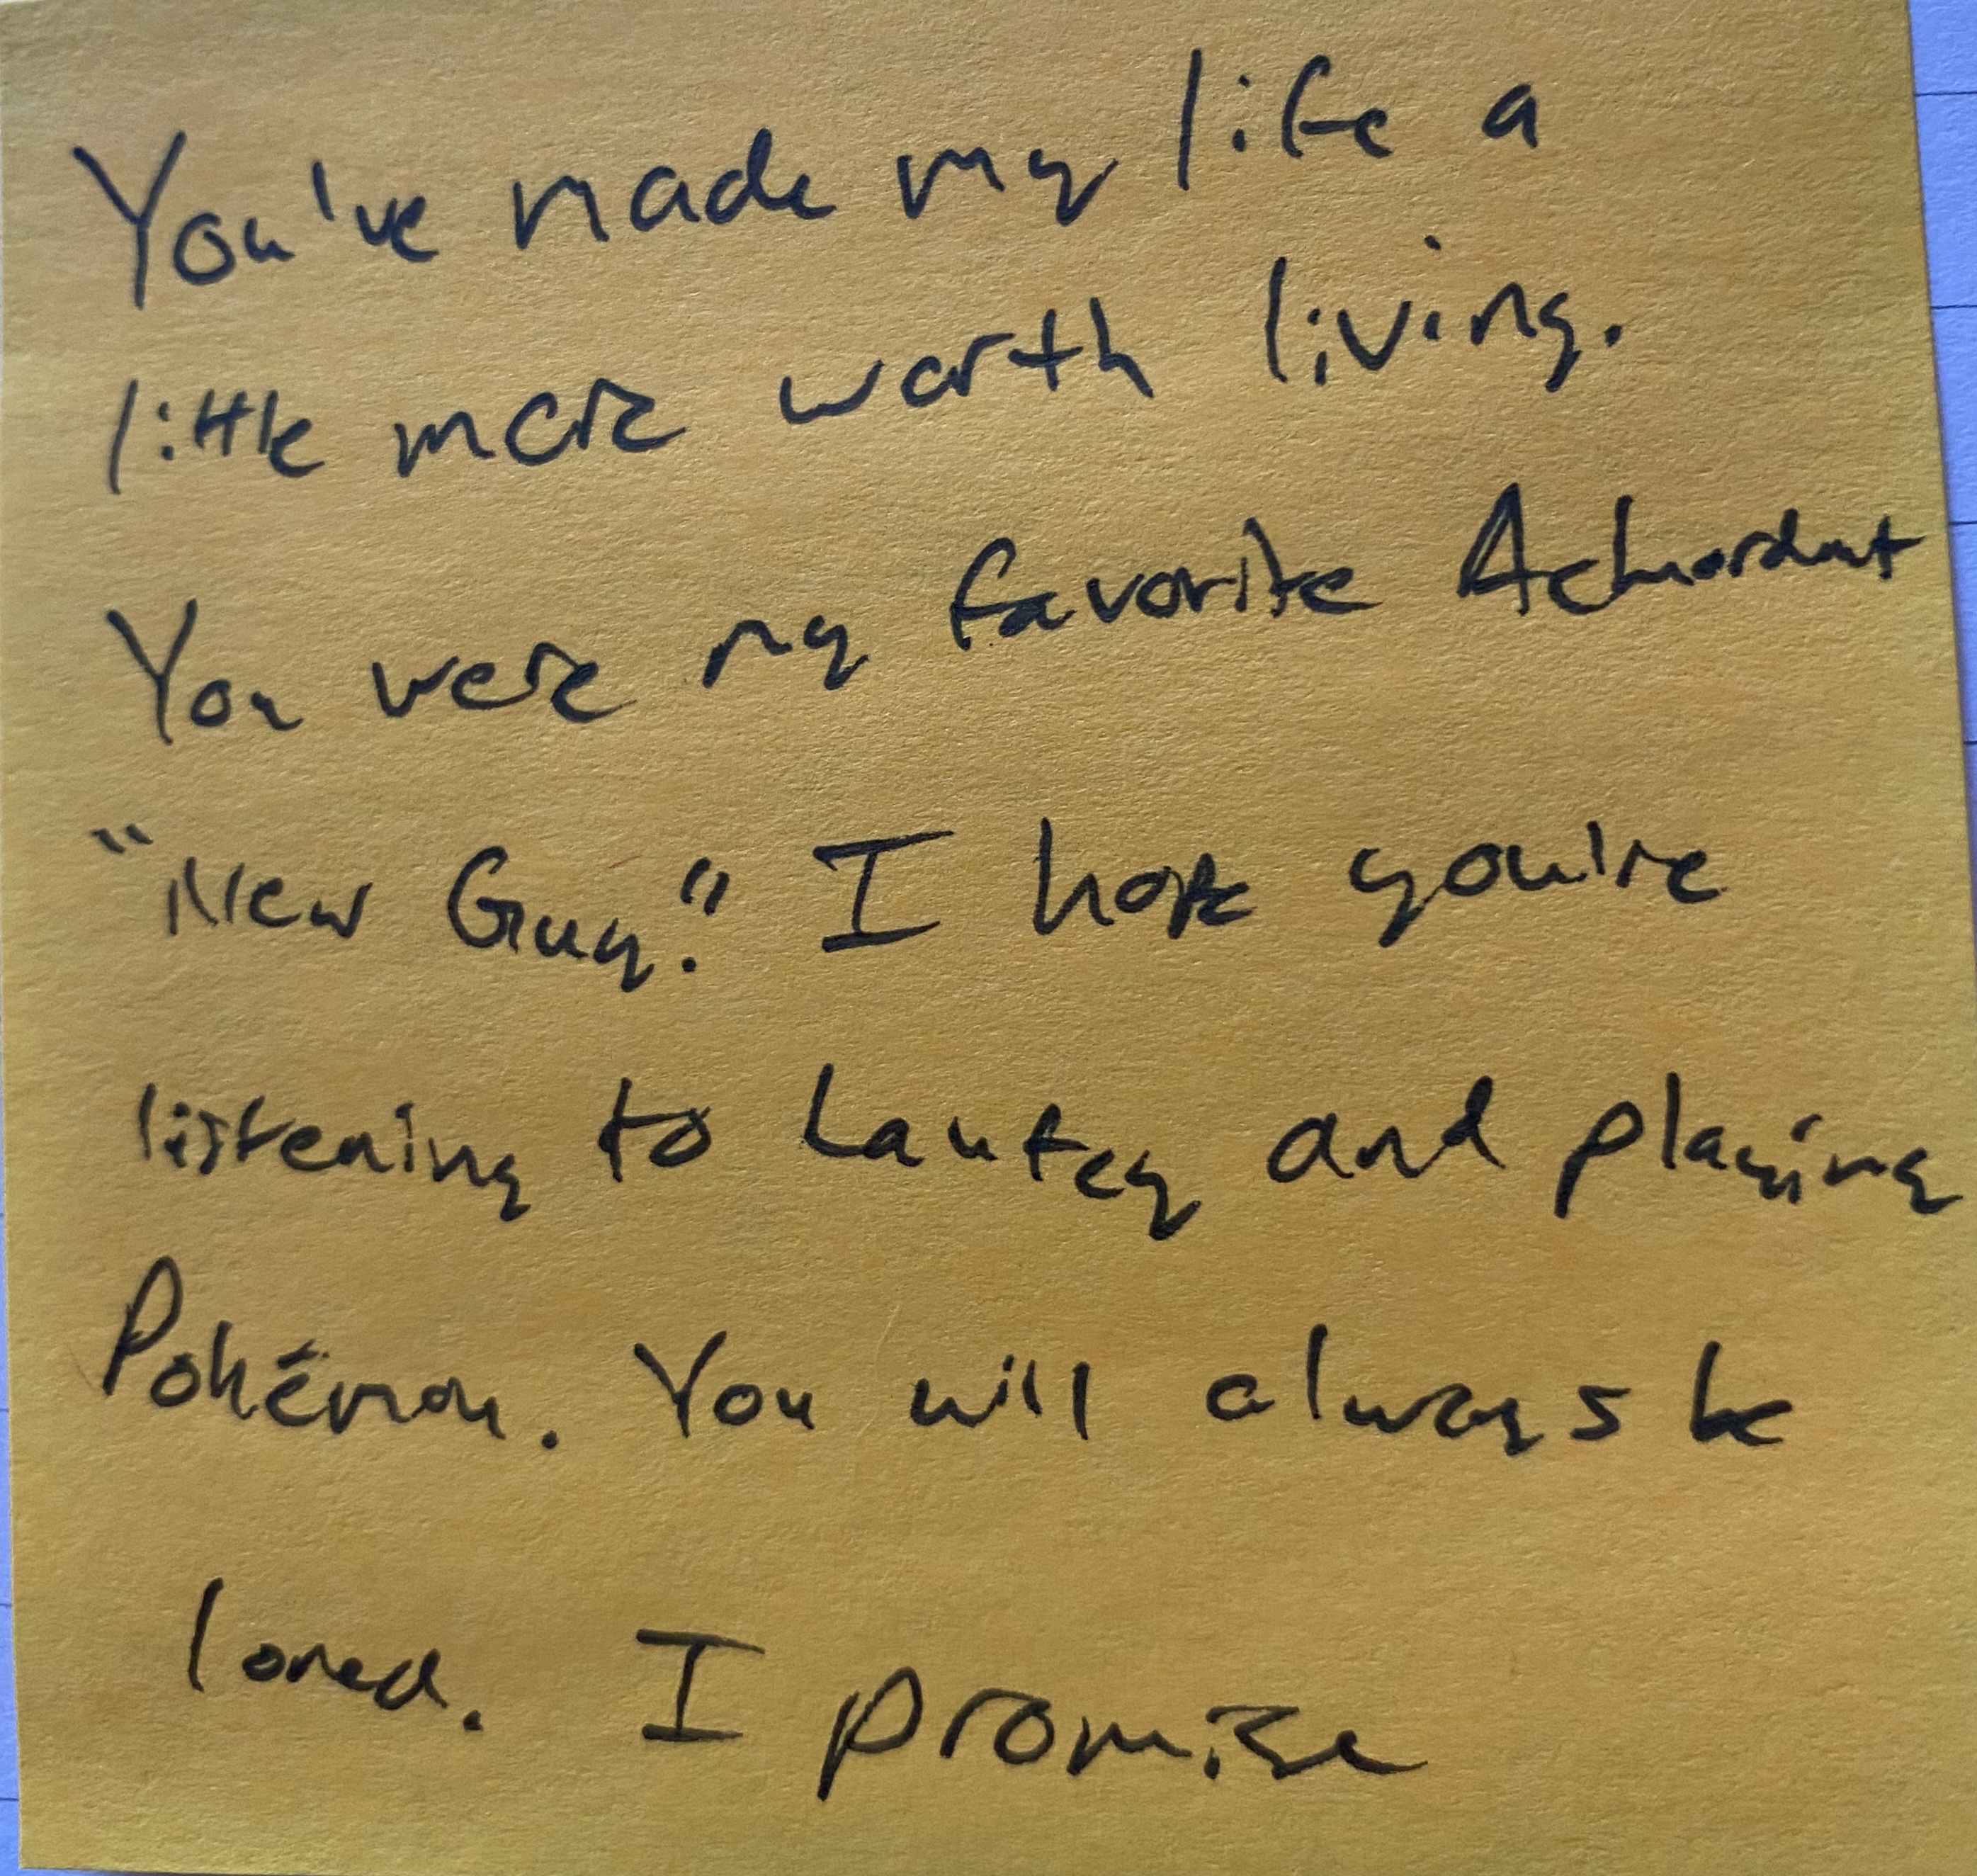 You've made my life a
little more worth living.
You were my favorite
"New Guy." I hope you're
listening to Lautey and playing
Pokémon. You will always be
loved. I promise